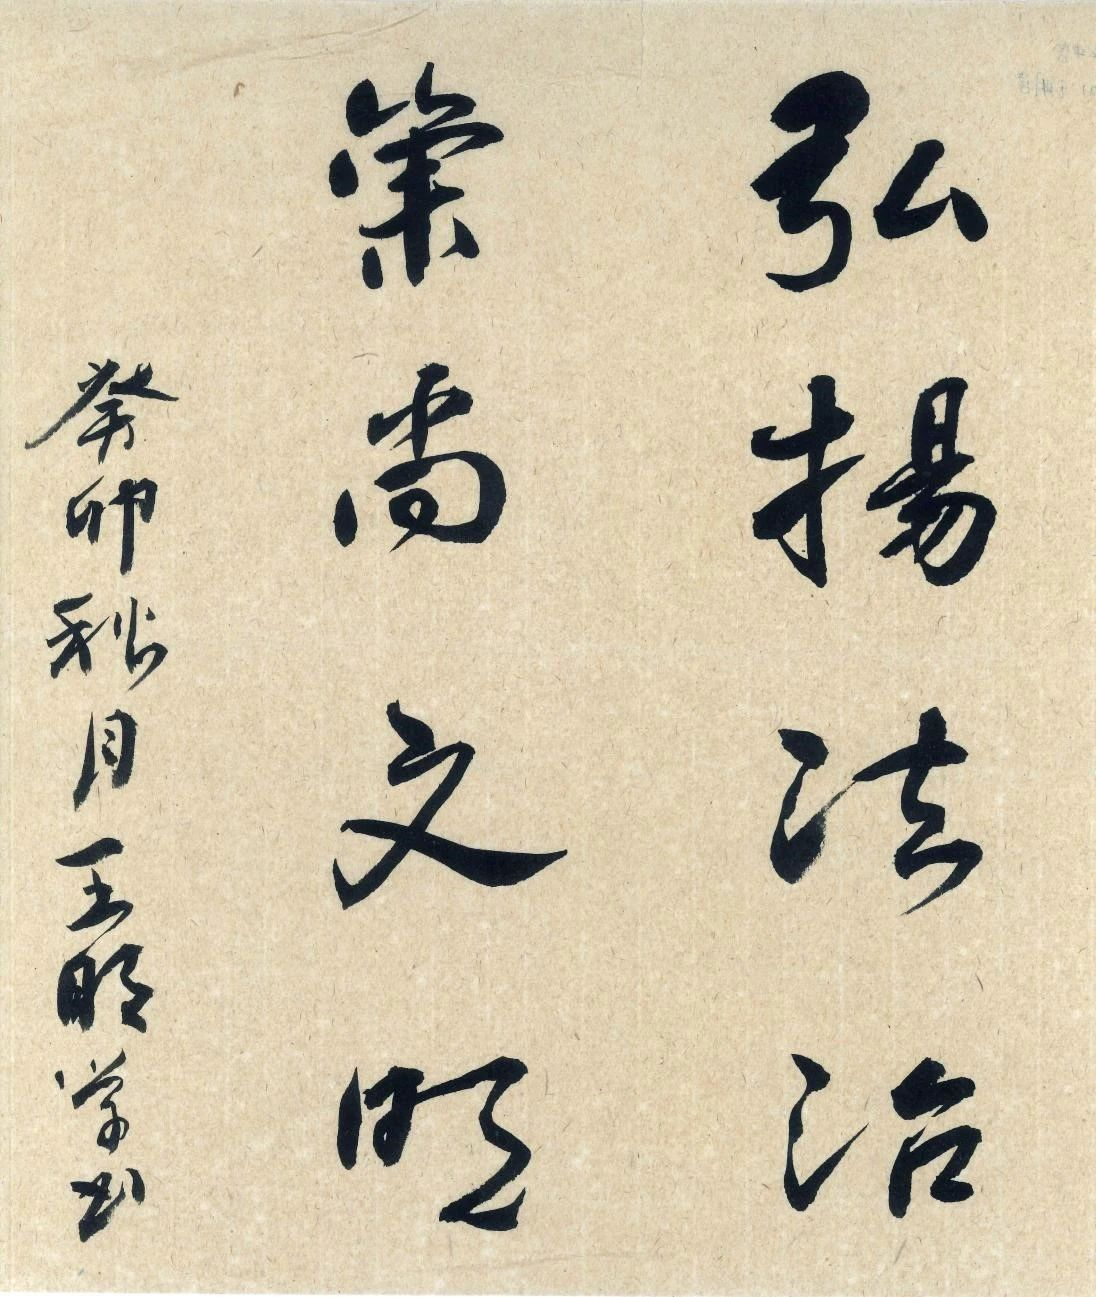 弘揚法治
崇尚文明
癸卯秋月王明学书